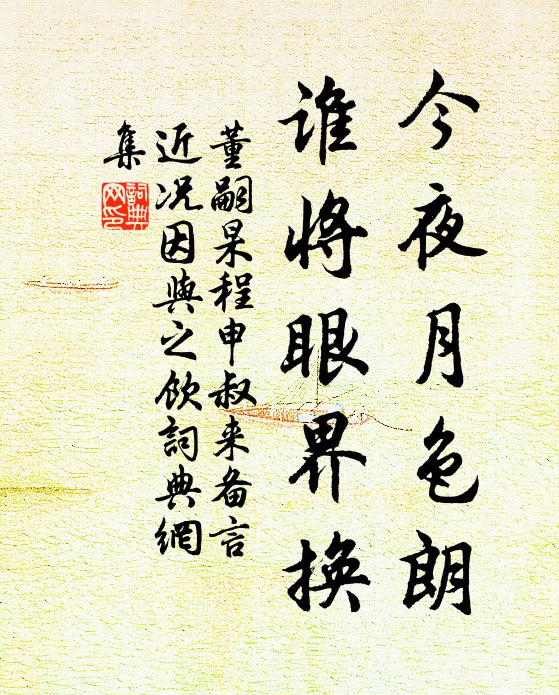 今夜月色朗
谁将眼界换
董嗣杲程申叔来备言
近况因與之饮詞典網
集
詞典
网印